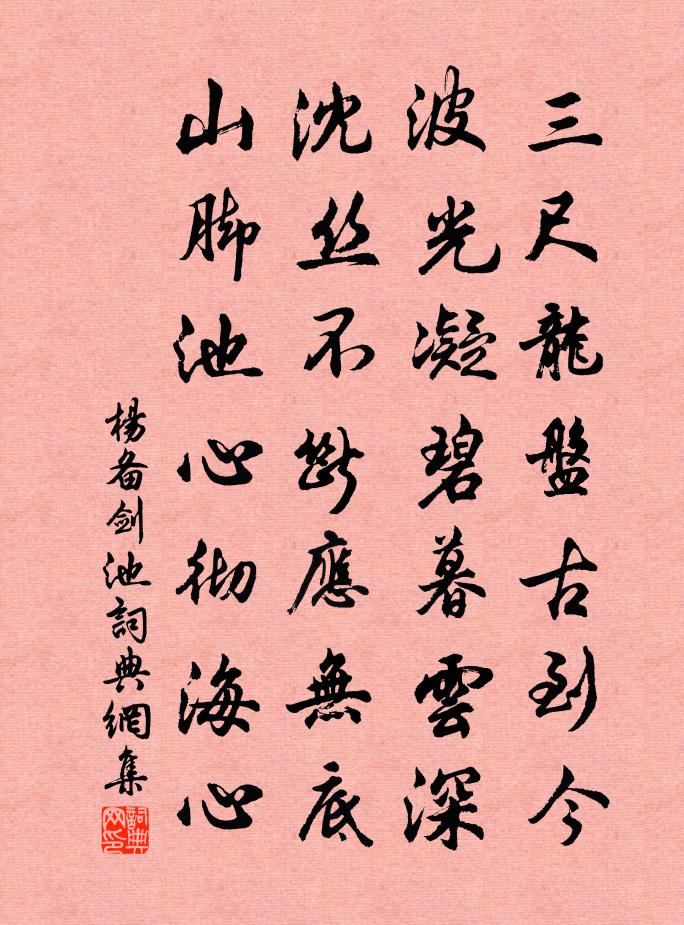 三尺龍盤古到今
波光凝碧暮雲深
沈丝不斷應無底
山脚池心彻海心
楊备劍池詞典網集
詞典网印